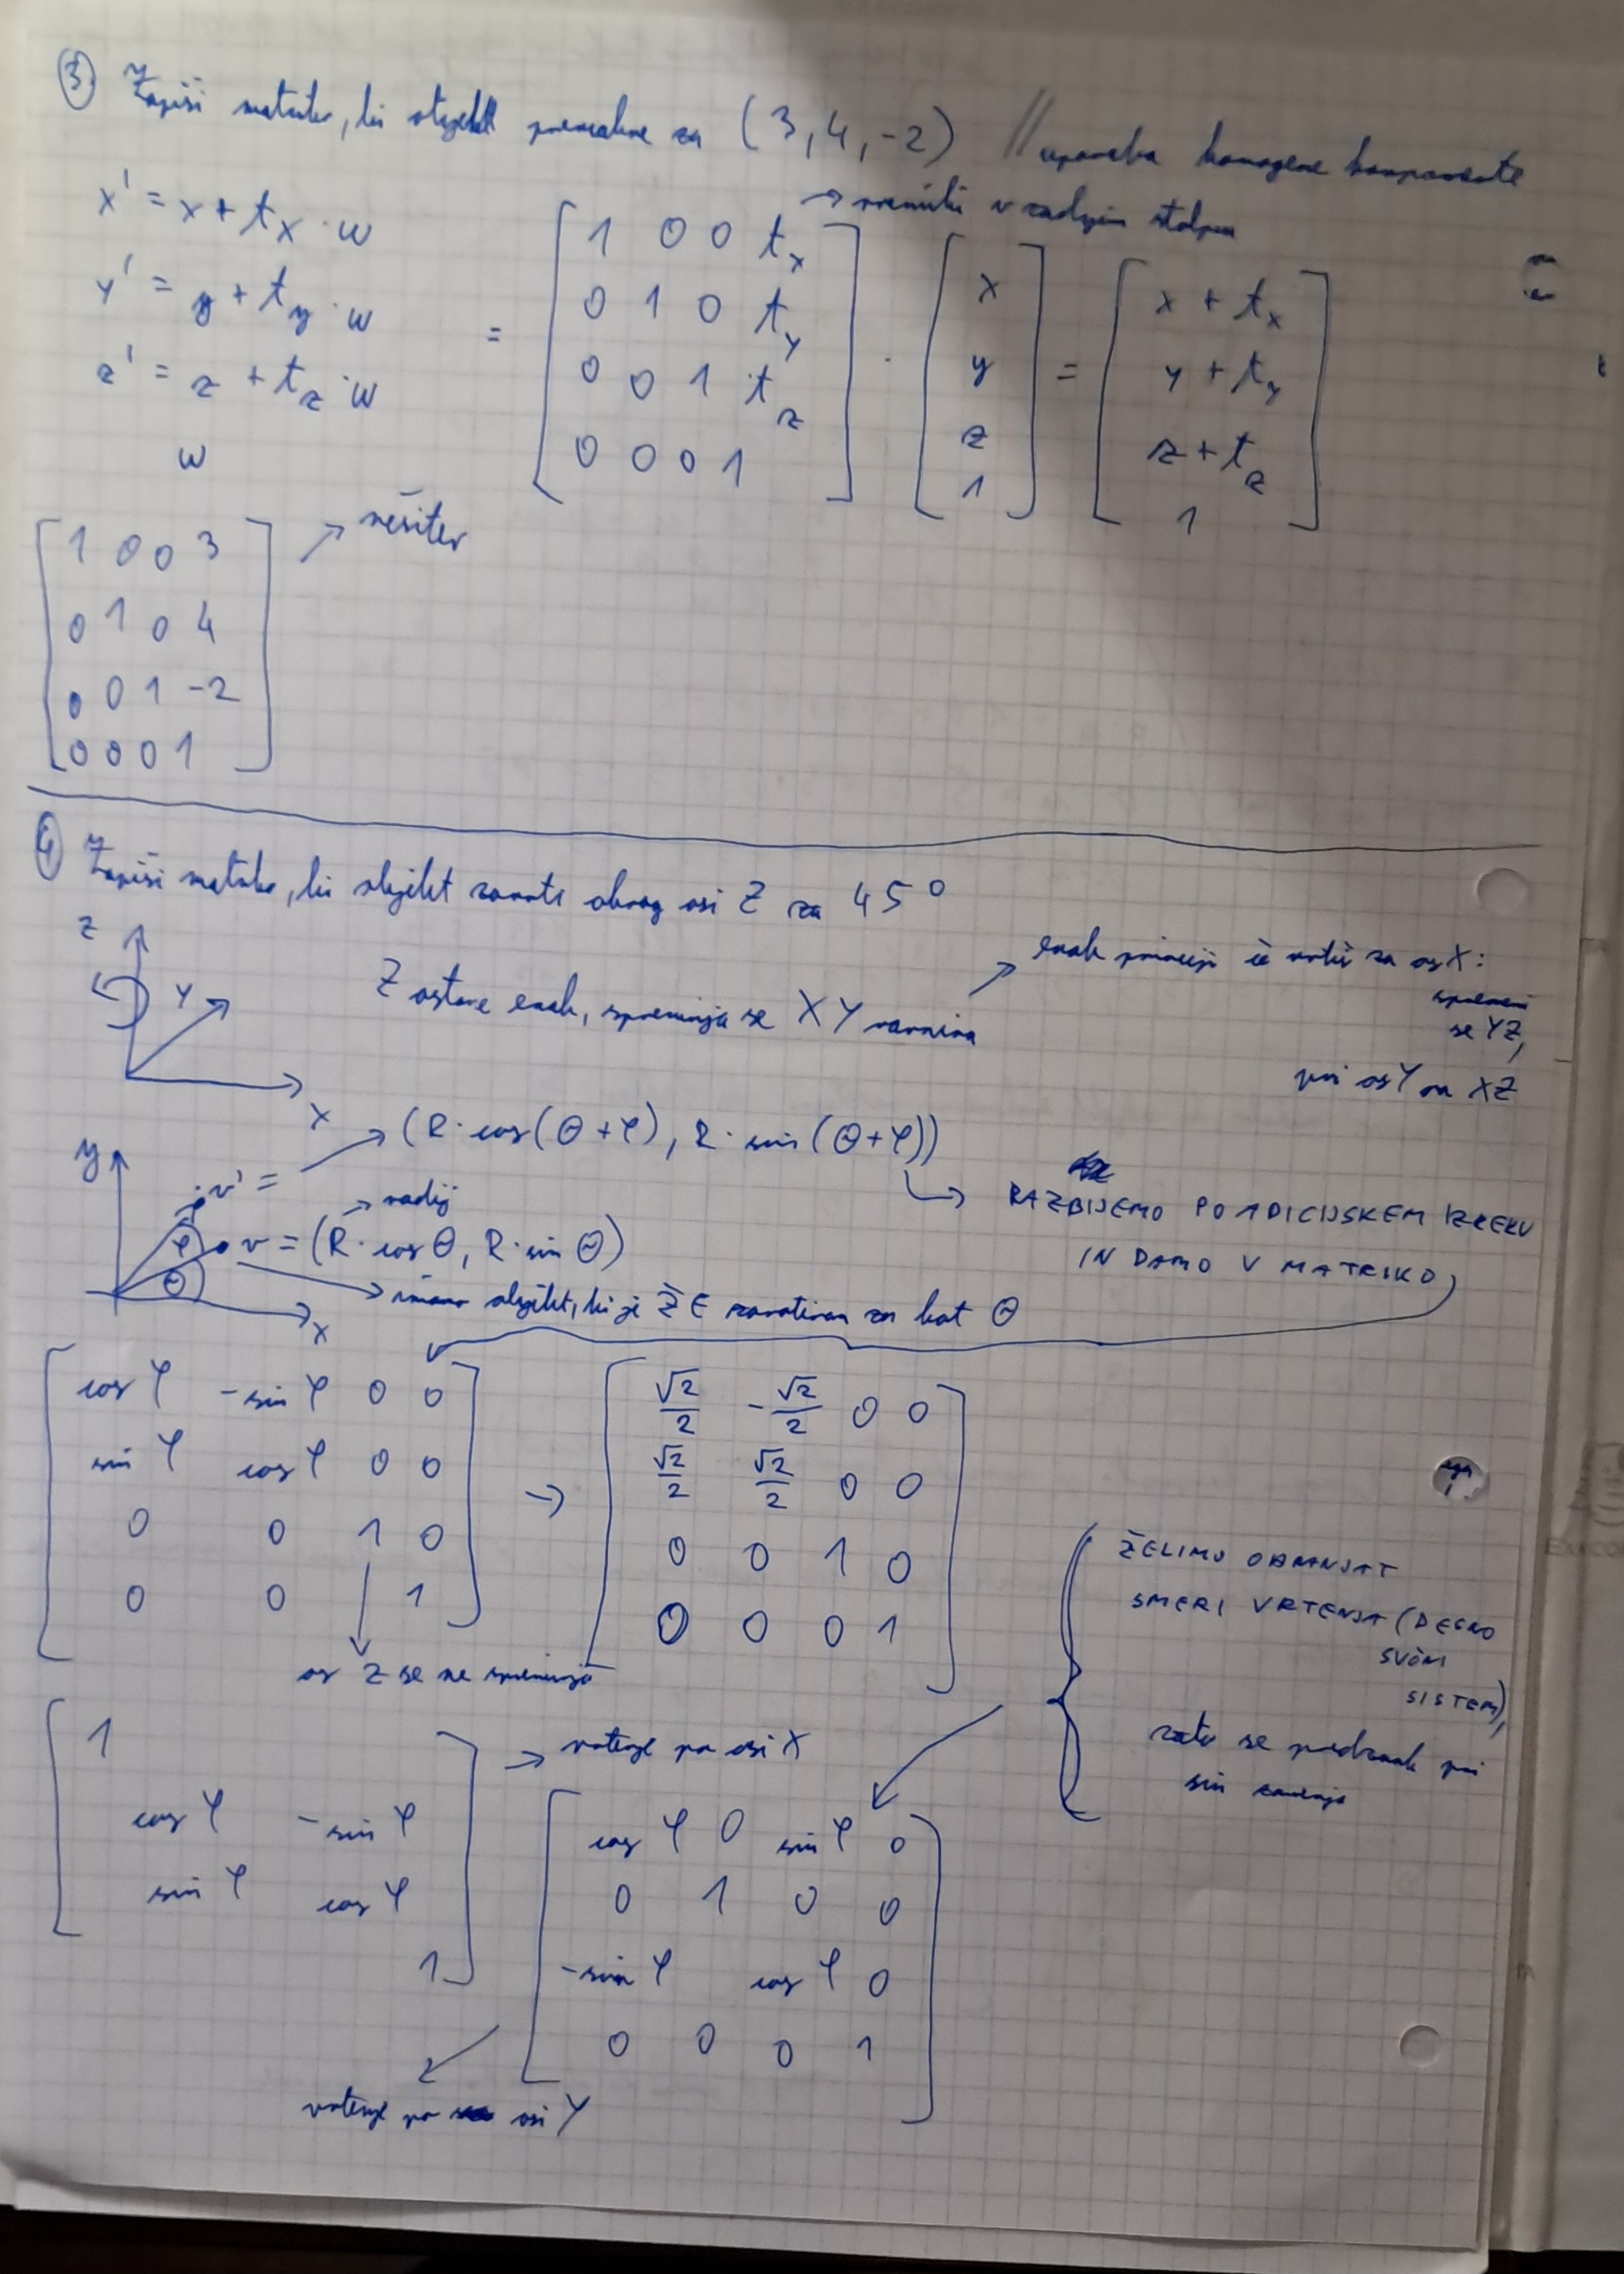 ③ Zapiši matriko, ki objekt premakne za (3, 4, -2) // uporaba homogene komponente
→ premiki v zadnjem stolpcu
x' = x + tx · w
y' = y + ty · w
z' = z + tz · w
w
=
[ 1 0 0 tx ] [ x ] [ x + tx ]
[ 0 1 0 ty ] · [ y ] = [ y + ty ]
[ 0 0 1 tz ] [ z ] [ z + tz ]
[ 0 0 0 1 ] [ 1 ] [ 1 ]
[ 1 0 0 3 ] → rešitev
[ 0 1 0 4 ]
[ 0 0 1 -2 ]
[ 0 0 0 1 ]
④ Zapiši matriko, ki objekt zavrti okrog osi Z za 45°
Z
Y
X
Z ostane enak, spreminja se XY ravnina
→ enak princip če vrtiš za os X:
spremeni
se YZ,
pri osY pa XZ
y
x
φ
θ
v' = → (R · cos(θ+φ), R · sin(θ+φ))
→ RAZBIJEMO PO ADICIJSKEM IZREKU
IN DAMO V MATRIKO
→ radij
v = (R · cos θ, R · sin θ)
→ imamo objekt, ki je ŽE zavrtiran za kot θ
[ cos φ -sin φ 0 0 ]
[ sin φ cos φ 0 0 ]
[ 0 0 1 0 ]
[ 0 0 1 ]
→
[ √2/2 -√2/2 0 0 ]
[ √2/2 √2/2 0 0 ]
[ 0 0 1 0 ]
[ 0 0 0 1 ]
os Z se ne spreminja
ŽELIMO OBRANJAT
SMERI VRTENJA (DESNO
SUČNI
SISTEM),
zato se predznak pri
sin zamenja
[ 1 ] → vrtenje po osi X
[ cos φ -sin φ ]
[ sin φ cos φ ]
[ 1 ]
[ cos φ 0 sin φ 0 ]
[ 0 1 0 0 ]
[ -sin φ cos φ 0 ]
[ 0 0 0 1 ]
vrtenje po osi Y